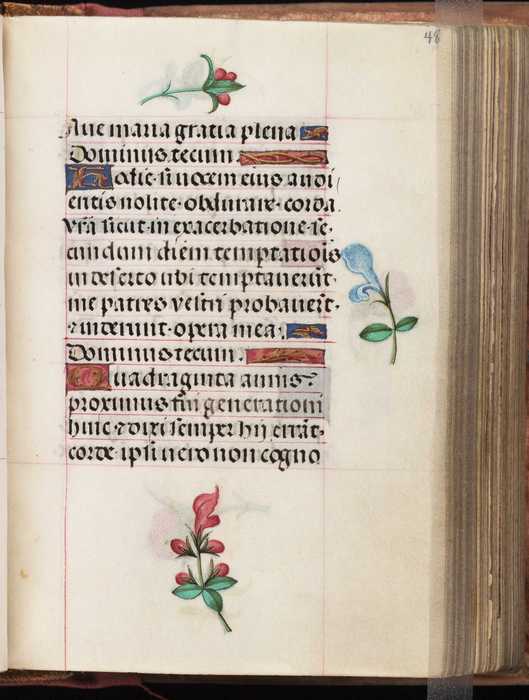 48
Aue maria gratia plena
Dominus tecum.
Hodie si uocem eius audi
entis nolite·obdurare·corda.
vr̄a sicut·in exacerbatione·se
cundum diem temptatiōis
in deserto ubi temptauerūt·
me patres vestri probauerūt·
⁊ uiderunt·opera mea:
Dominus tecum.
Quadraginta annis
proximus fui generationi
huic·⁊ dixi semper hij errāt·
corde·ipsi uero non cogno